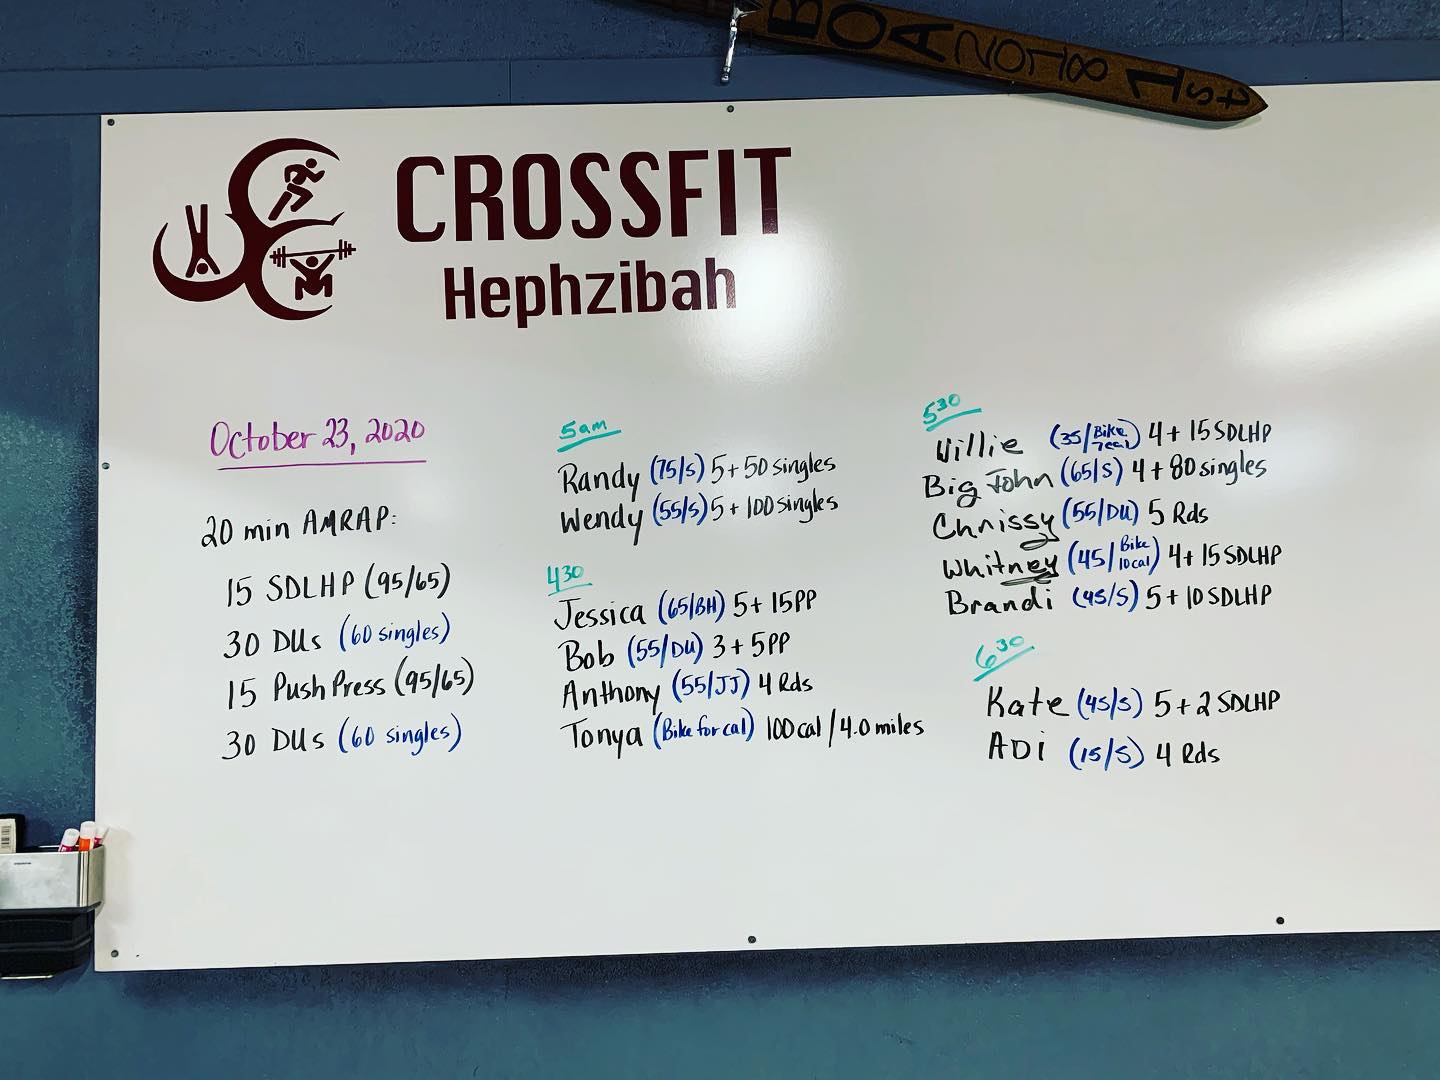 BOA 2018 1st
CROSSFIT
Hephzibah
October 23, 2020
20 min AMRAP:
15 SDLHP (95/65)
30 DUs (60 singles)
15 Push Press (95/65)
30 DUs (60 singles)
5am
Randy (75/S) 5 + 50 singles
Wendy (55/S) 5 + 100 singles
430
Jessica (65/BH) 5 + 15PP
Bob (55/DU) 3 + 5PP
Anthony (55/JJ) 4 Rds
Tonya (Bike for cal) 100 cal / 4.0 miles
530
Willie (35/Bike 7cal) 4 + 15 SDLHP
Big John (65/S) 4 + 80 singles
Chrissy (55/DU) 5 Rds
Whitney (45/Bike 10cal) 4 + 15 SDLHP
Brandi (45/S) 5 + 10 SDLHP
630
Kate (45/S) 5 + 2 SDLHP
ADi (15/S) 4 Rds